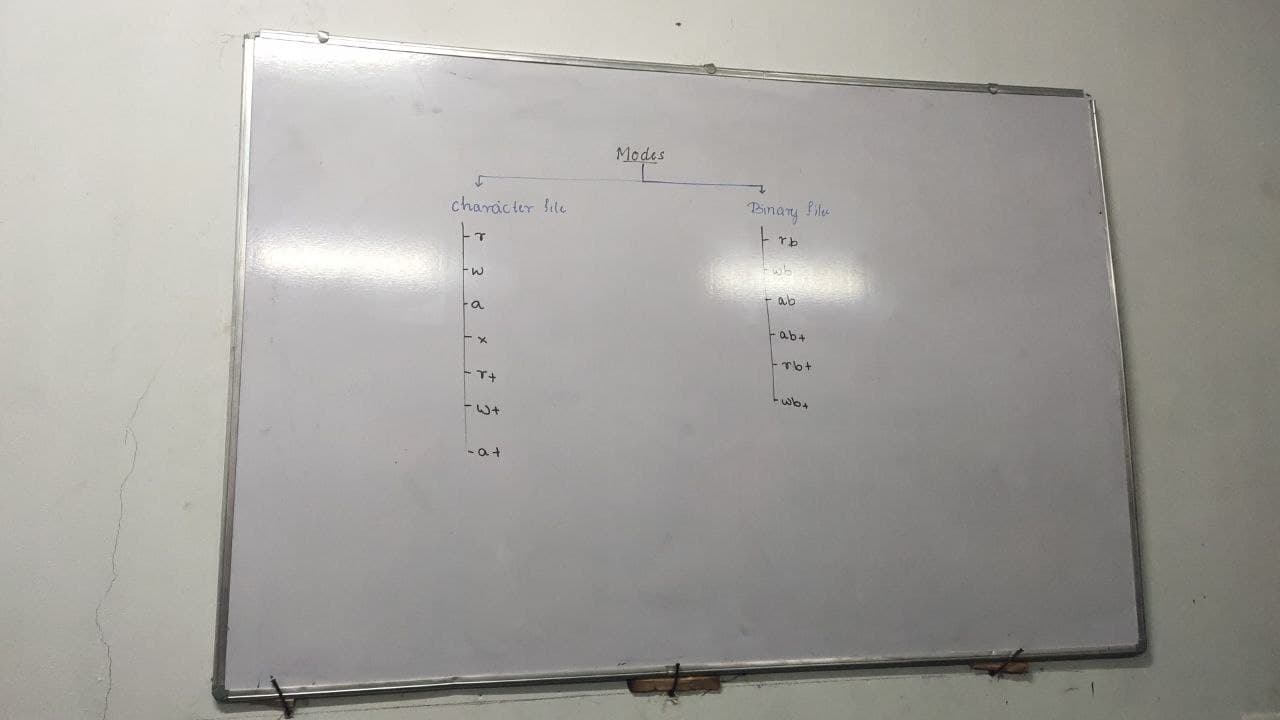 Modes
Character file
r
w
a
x
r+
w+
a+
Binary file
rb
wb
ab
ab+
rb+
wb+